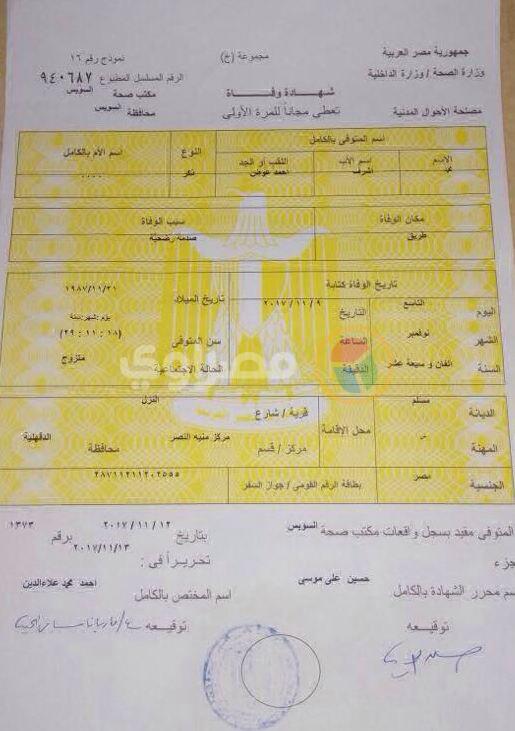 جمهورية مصر العربية
مجموعة (خ)
نموذج رقم ١٦
وزارة الصحة / وزارة الداخلية
الرقم المسلسل المطبوع ٩٤٠٦٨٧
شهادة وفاة
مكتب صحة السويس
مصلحة الأحوال المدنية
تعطى مجاناً للمرة الأولى
محافظة السويس
اسم المتوفى بالكامل
النوع
اسم الأم بالكامل
الإسم
اسم الأب
اللقب أو الجد
اشرف
احمد عوض
ذكر
مكان الوفاة
سبب الوفاة
طريق
صدمه رضحيه
تاريخ الوفاة كتابة
اليوم
التاسع
التاريخ
٢٠١٧/١١/٩
تاريخ الميلاد
١٩٨٧/١١/٢١
الشهر
نوفمبر
الساعة
سن المتوفى
يوم:شهر:سنة
(١٨ : ١١ : ٢٩)
السنة
الفان و سبعة عشر
الدقيقة
الحالة الاجتماعية
متزوج
مصراوي
الديانة
مسلم
محل الاقامة
قرية / شارع
النزل
المهنة
مركز / قسم
مركز منيه النصر
محافظة
الدقهلية
الجنسية
مصر
بطاقة الرقم القومى / جواز السفر
المتوفى مقيد بسجل واقعات مكتب صحة السويس
بتاريخ ٢٠١٧/١١/١٢
برقم ١٣٧٣
جزء
تحريراً فى : ٢٠١٧/١١/١٣
سم محرر الشهادة بالكامل
حسين على موسى
اسم المختص بالكامل
احمد محمد علاءالدين
توقيعه
توقيعه